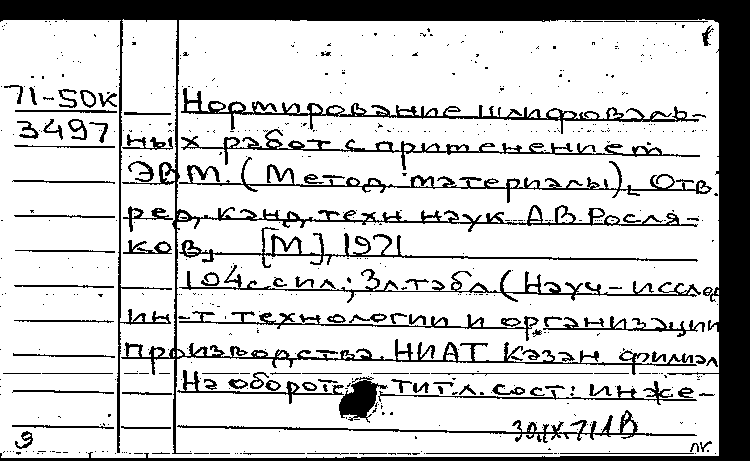 71-50К Нормирование шлифоваль-
3497 ных работ с применением
ЭВМ. (Метод. материалы). Отв.
ред. канд. техн наук А.В. Росля-
ков. [М], 1971
104 с. с ил.; 3 л. табл. (Науч-исслед
ин-т технологии и организации
производства. НИАТ. Казан филиал
На обороте тит. л. сост: инже-
30.IX.71
9